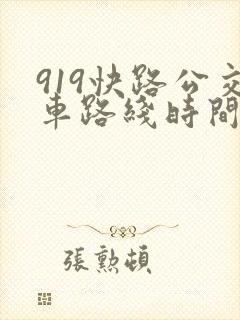 919快路公交
車路綫時間
張勲頓